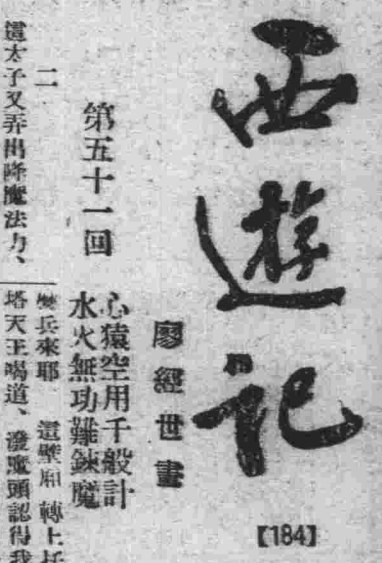 西遊記
【184】
廖經世畫
第五十一回
心猿空用千般計
水火無功難鍊魔
二
這太子又弄出降魔法力、
兵來耶 這壁廂 轉上托
塔天王喝道、潑魔頭認得我